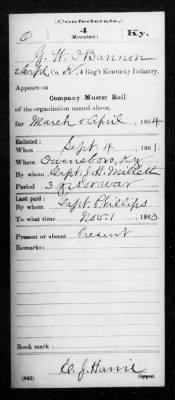 (Confederate.)
O 4 Ky.
(Mounted.)
J. W. O'Bannon
2 Corpl, Co. , 4 Reg't Kentucky Infantry.
Appears on
Company Muster Roll
of the organization named above,
for March & April, 1864
Enlisted:
When Sept 4, 1861.
Where Owensboro, Ky
By whom Capt. J. H. Millett
Period 3 y or war
Last paid:
By whom Capt. Phillips
To what time Nov. 1, 1863.
Present or absent Present
Remarks:
Book mark:
(642) Copyist.